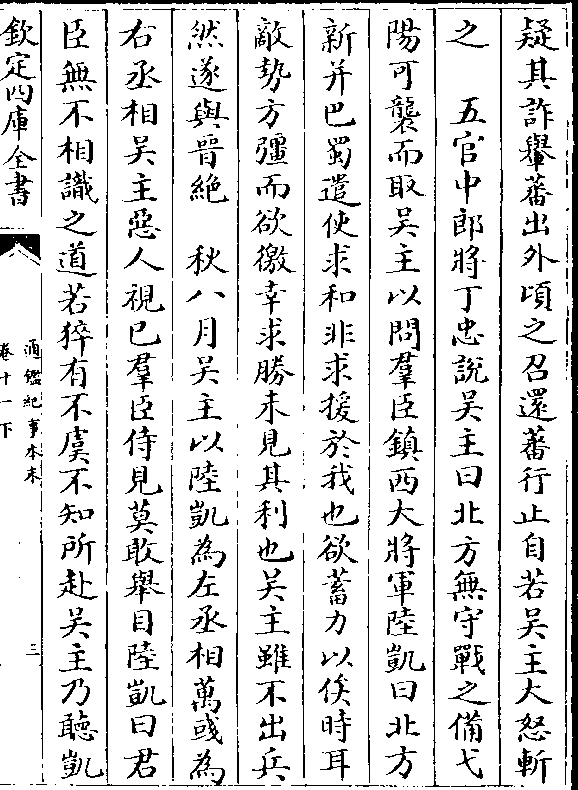 疑其詐轝蕃出外頃之召還蕃行止自若吴主大怒斬
之　五官中郎將丁忠說吴主曰北方無守戰之備弋
陽可襲而取吴主以問羣臣鎮西大將軍陸凱曰北方
新并巴蜀遣使求和非求援於我也欲蓄力以俟時耳
敵勢方彊而欲徼幸求勝未見其利也吴主雖不出兵
然遂與晉絶　秋八月吴主以陸凱為左丞相萬彧為
右丞相吴主惡人視已羣臣侍見莫敢舉目陸凱曰君
臣無不相識之道若猝有不虞不知所赴吴主乃聽凱
欽定四庫全書
通鑑紀事本末
卷十一下
三